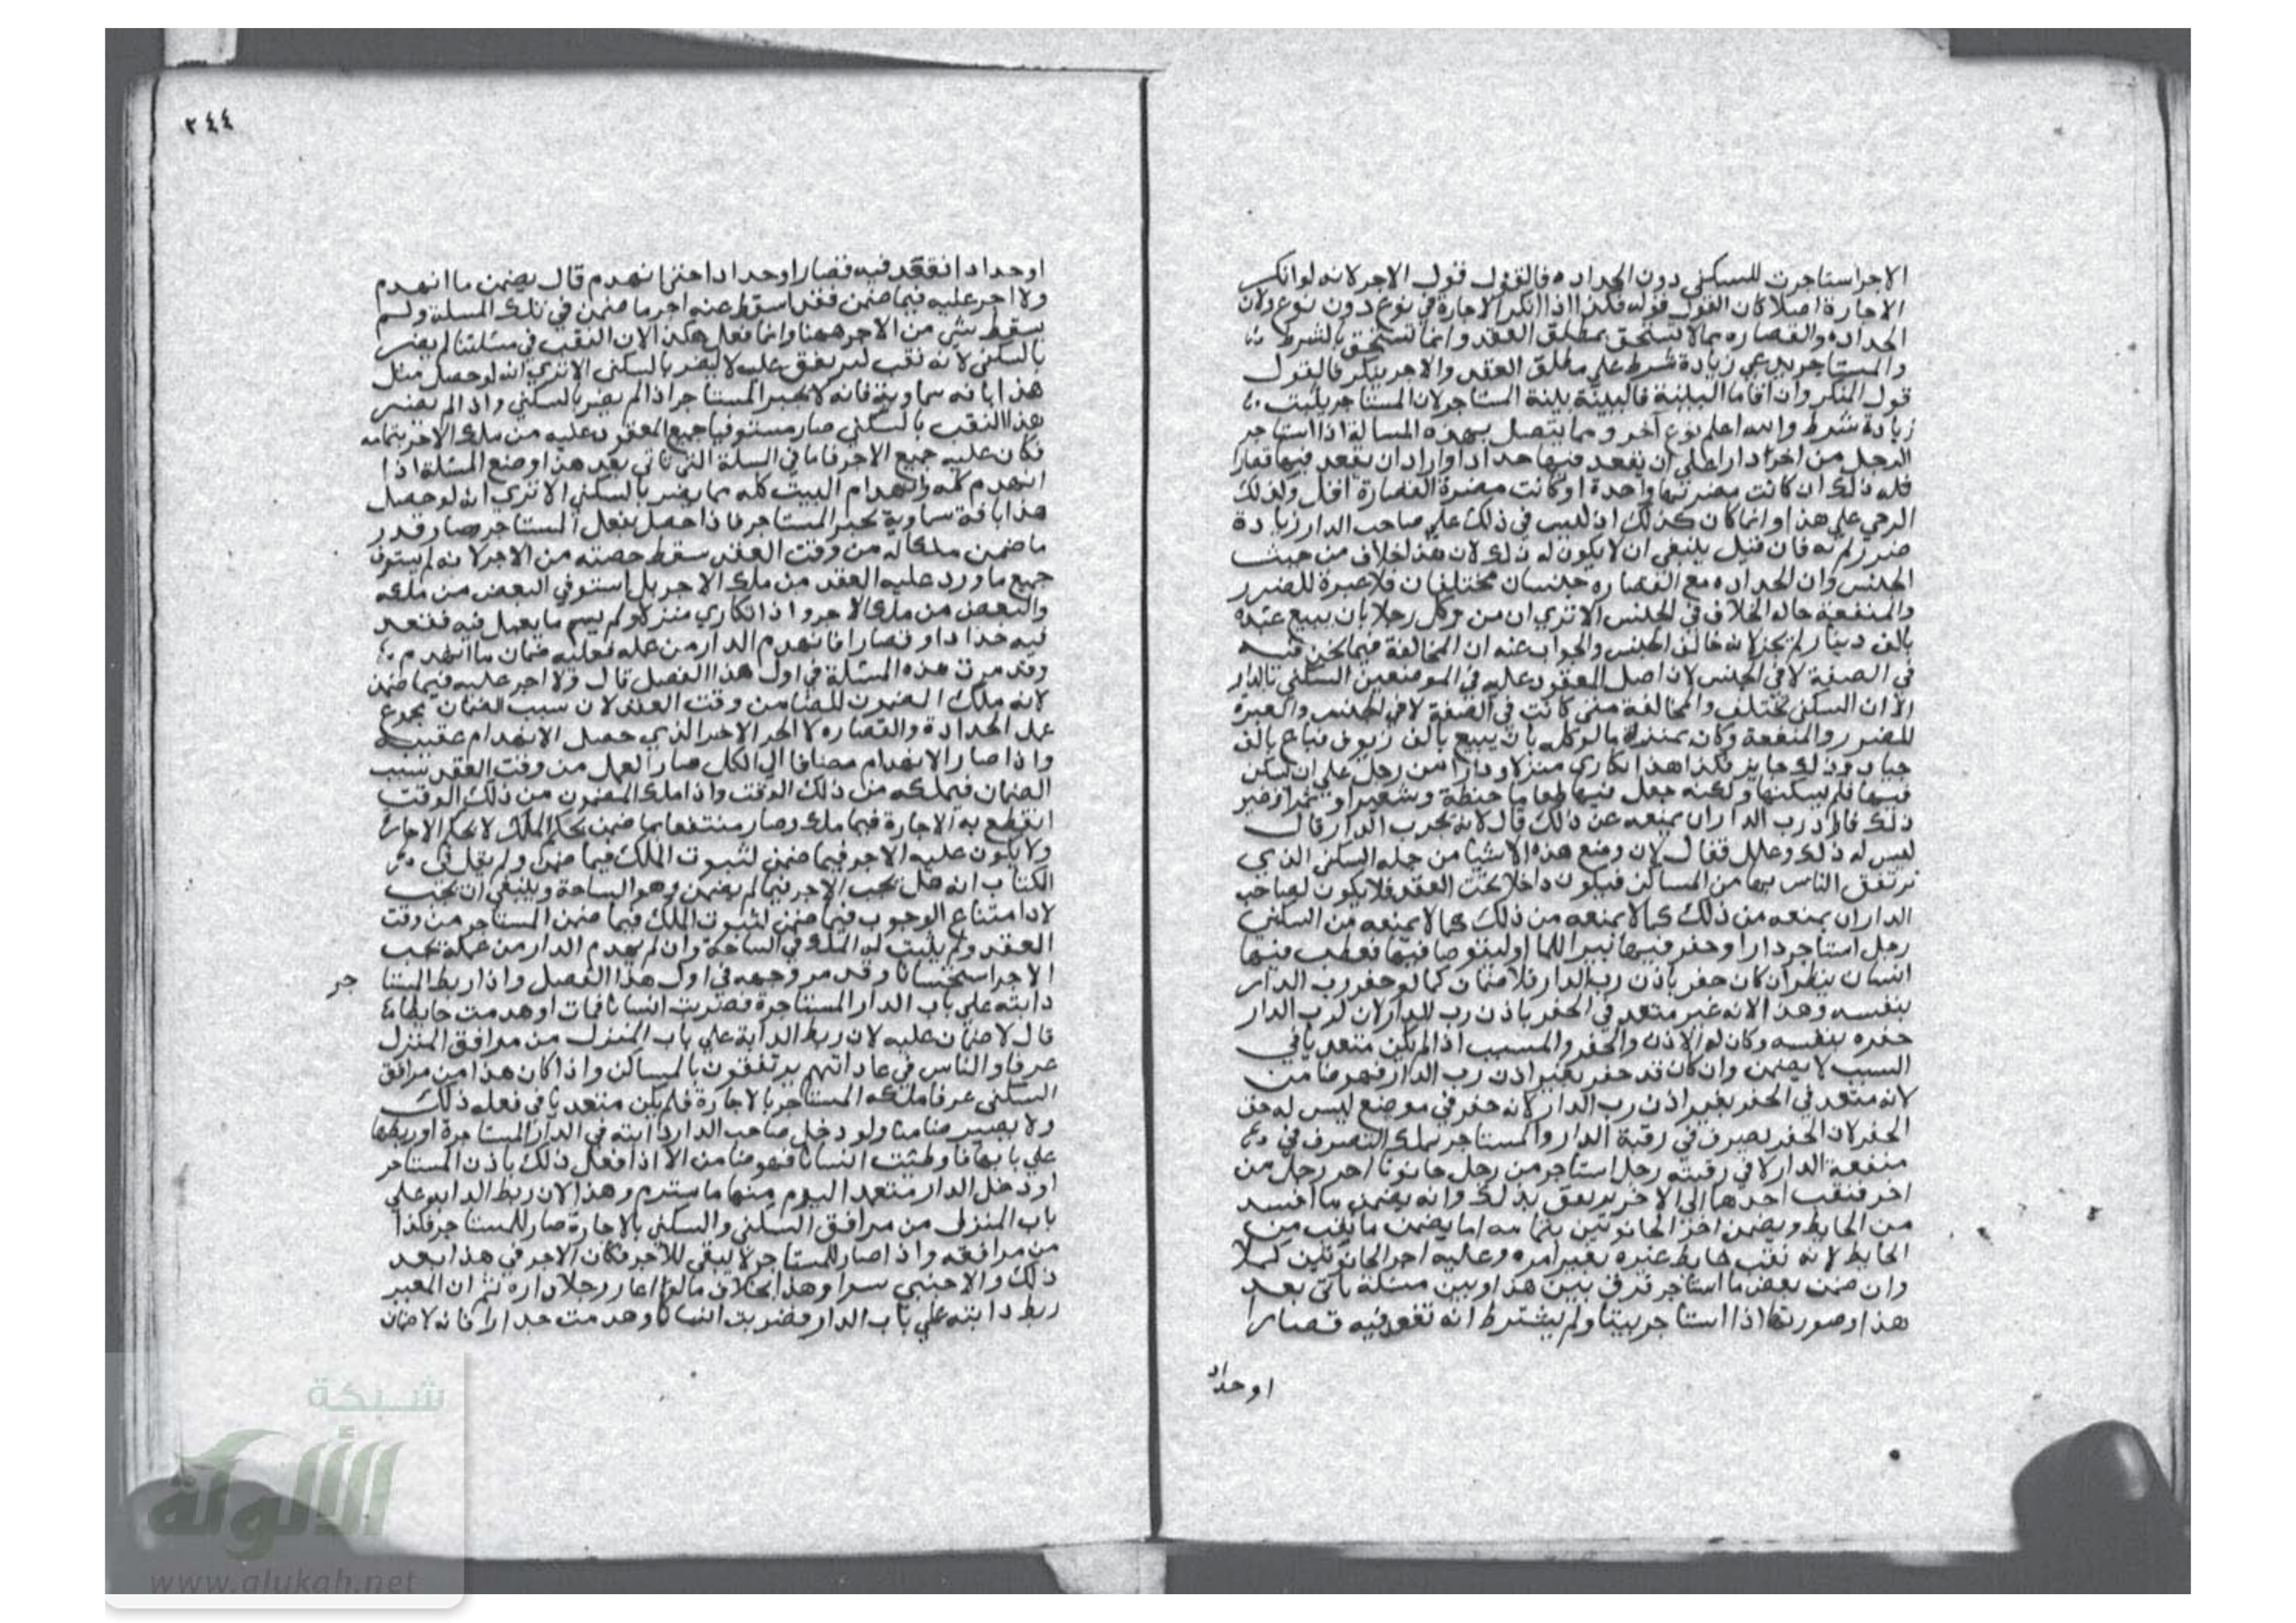 الاجر استاجرت للسكني دون الحداده فالقول قول الاجر لانه لو انكر
الاجارة اصلا كان القول قوله فكذا اذا انكر الاجارة في نوع دون نوع ولان
الحداده والقصاره مما لا تستحق بمطلق العقد وانما تستحق بالشرط
والمستاجر يدعي زيادة شرط علي مطلق العقد والاجر ينكر فالقول
قول المنكر وان اقاما البينة فالبينة بينة المستاجر لان المستاجر يثبت
زيادة شرط والله اعلم نوع آخر ومما يتصل بهذه المسالة اذا استاجر
الرجل من اخر دارا علي ان يقعد فيها حدادا واراد ان يقعد فيها قصارا
فله ذلك ان كانت مضرتهما واحدة او كانت مضرة القصارة اقل وكذلك
الرحي علي هذا وانما كان كذلك اذ ليس في ذلك علي صاحب الدار زيادة
ضرر لم فان قيل ينبغي ان لا يكون له ذلك لان هذا خلاف من حيث
الجنس وان الحداده مع القصاره جنسان مختلفان فلا عبرة للضرر
والمنفعة حاله الخلاف في الجنس الا تري ان من وكل رجلا بان يبيع عبده
بالف دينار لم يجز لانه خالف الجنس والجواب عنه ان المخالفة فيما نحن فيه
في الصفة لا في الجنس لان اصل المعقود عليه في الموضعين السكني بالدار
الا ان السكني تختلف والمخالفة متي كانت في الصفة لا في الجنس والعبرة
للضرر والمنفعة وكان بمنزلة ما لو وكله بان يبيع بالف زيوف فباع بالف
جياد وذلك جايز فكذا هذا تكاري منزلا ودارا من رجل علي ان يسكن
فيها فلم يسكنها ولكنه جعل فيها طعاما حنطة وشعيرا وتمرا وغير
ذلك فاراد رب الدار ان يمنعه عن ذلك قال لانه يخرب الدار قال
ليس له ذلك وعلل فقال لان وضع هذه الاشيا من جمله السكني الذي
يرتفق الناس بها من المساكن فيكون داخلا تحت العقد فلا يكون لصاحب
الدار ان يمنعه من ذلك كما لا يمنعه من ذلك كما لا يمنعه من السكني
رجل استاجر دارا وحفر فيها بيرا للما او ليتوضا فيها فعطب فيها
انسان ينظر ان كان حفر باذن رب الدار فلا ضمان كما لو حفر رب الدار
بنفسه وهذا لانه غير متعد في الحفر باذن رب الدار لان لرب الدار
حفره بنفسه وكان له الاذن والحفر والمسبب اذا لم يكن متعديا في
السبب لا يضمن وان كان قد حفر بغير اذن رب الدار فهو ضامن
لانه متعد في الحفر بغير اذن رب الدار لانه حفر في موضع ليس له حق
الحفر لان الحفر تصرف في رقبة الدار والمستاجر يملك التصرف في
منفعة الدار لا في رقبته رجل استاجر من رجل حانوتا اخر رجل من
اخر فنقب احدهما الي الاخر يرتفق بذلك وانه يضمن ما افسد
من الحايط ويضمن اجر الحانوتين بتمامه اما يضمن ما نقب من
الحايط لانه نقب حايط غيره بغير امره وعليه اجر الحانوتين كملا
وان ضمن بعض ما استاجر فرق بين هذا وبين مسئلة ياتي بعد
هذا وصورتها اذا استاجر بيتا ولم يشترط انه يقعد فيه قصارا
او حداد
٢٤٤
او حدادا فقعد فيه قصارا وحدادا حتي انهدم قال يضمن ما انهدم
ولا اجر عليه فيما ضمن فقد اسقط عنه اجر ما ضمن في تلك المسلة ولم
يسقط شي من الاجر ههنا وانما فعل هكذا لان النقب في مسئلتنا لم يضر
بالسكني لانه نقب ليرتفق عليه لا ليضر بالسكني الا تري انه لو حصل مثل
هذا بافه سماوية فانه لا يخير المستاجر اذا لم يضر بالسكني واذا لم يضر
هذا النقب بالسكني صار مستوفيا جميع المعقود عليه من ملك الاجر بتمامه
فكان عليه جميع الاجر فاما في المسلة التي تاتي بعد هذا وضع المسئلة اذا
انهدم كله وانهدام البيت كله مما يضر بالسكني الا تري انه لو حصل
هذا بافة سماوية يخير المستاجر فاذا حصل بفعل المستاجر صار قدر
ما ضمن ملكا له من وقت العقد سقط حصته من الاجر لانه لم يستوف
جميع ما ورد عليه العقد من ملك الاجر بل استوفي البعض من ملكه
والبعض من ملك الاجر واذا تكاري منزلا ولم يسم ما يعمل فيه فقعد
فيه حدادا وقصارا فانهدم الدار من عمله فعليه ضمان ما انهدم
وقد مرت هذه المسئلة في اول هذا الفصل قال ولا اجر عليه فيما ضمن
لانه ملك المضمون للضمان من وقت العقد لان سبب الضمان مجموع
عمل الحدادة والقصاره لا الجز الاخير الذي حصل الانهدام عقيبه
واذا صار الانهدام مضافا الي الكل صار العمل من وقت العقد سبب
الضمان فيملكه من ذلك الوقت واذا ملك المضمون من ذلك الوقت
انقطع به الاجارة فيما ملك وصار منتفعا بما ضمن بحكم الملك لا بحكم الاجارة
ولا يكون عليه الاجر فيما ضمن لثبوت الملك فيما ضمن ولم يقل في
الكتاب انه هل تجب الاجر فيما لم يضمن وهو الساحة وينبغي ان تجب
لان امتناع الوجوب فيما ضمن لثبوت الملك فيما ضمن المستاجر من وقت
العقد ولم يثبت له الملك في الساحة وان لم يهدم الدار من عمله تجب
الاجر استحسانا وقد مر وجهه في اول هذا الفصل واذا ربط المستا جر
دابته علي باب الدار المستاجرة فضربت انسانا فمات او هدمت حايطا
قال لا ضمان عليه لان ربط الدابة علي باب المنزل من مرافق المنزل
عرفا والناس في عاداتهم يرتفقون بالمساكن واذا كان هذا من مرافق
السكني عرفا ملكه المستاجر بالاجارة فلم يكن متعديا في فعله ذلك
ولا يصير ضامنا ولو دخل صاحب الدار دابته في الدار المستاجرة او ربطها
علي بابها فاوطئت انسانا فهو ضامن الا اذا فعل ذلك باذن المستاجر
او دخل الدار متعهدا ليوم منها ما سترم وهذا لان ربط الدابه علي
باب المنزل من مرافق السكني والسكني بالاجارة صار للمستاجر فكذا
من مرافقه واذا صار للمستاجر لا يبقي للاجر فكان الاجر في هذا بعد
ذلك والاجنبي سوا وهذا بخلاف ما لو اعار رجلا داره ثم ان المعير
ربط دابته علي باب الدار فضربت انسانا وهدمت جدارا فانه لا ضمان
شبكة
الألوكة
www.alukah.net